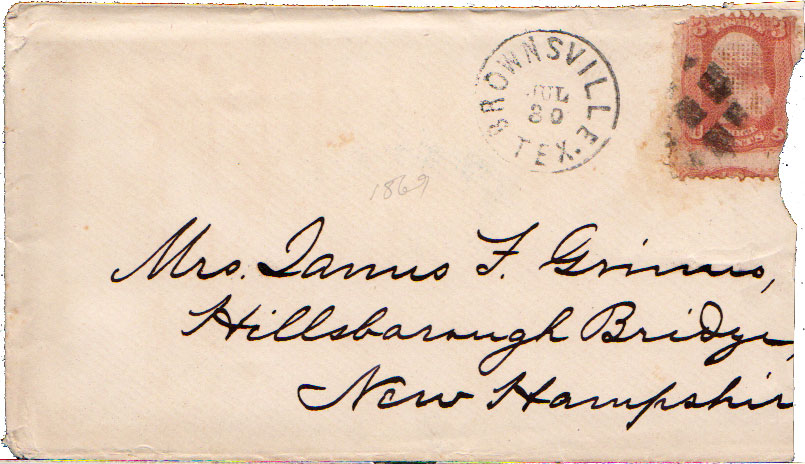 BROWNSVILLE
JUL
30
TEX.
3 3
1869
Mrs. James F. Grimes,
Hillsborough Bridge,
New Hampshir